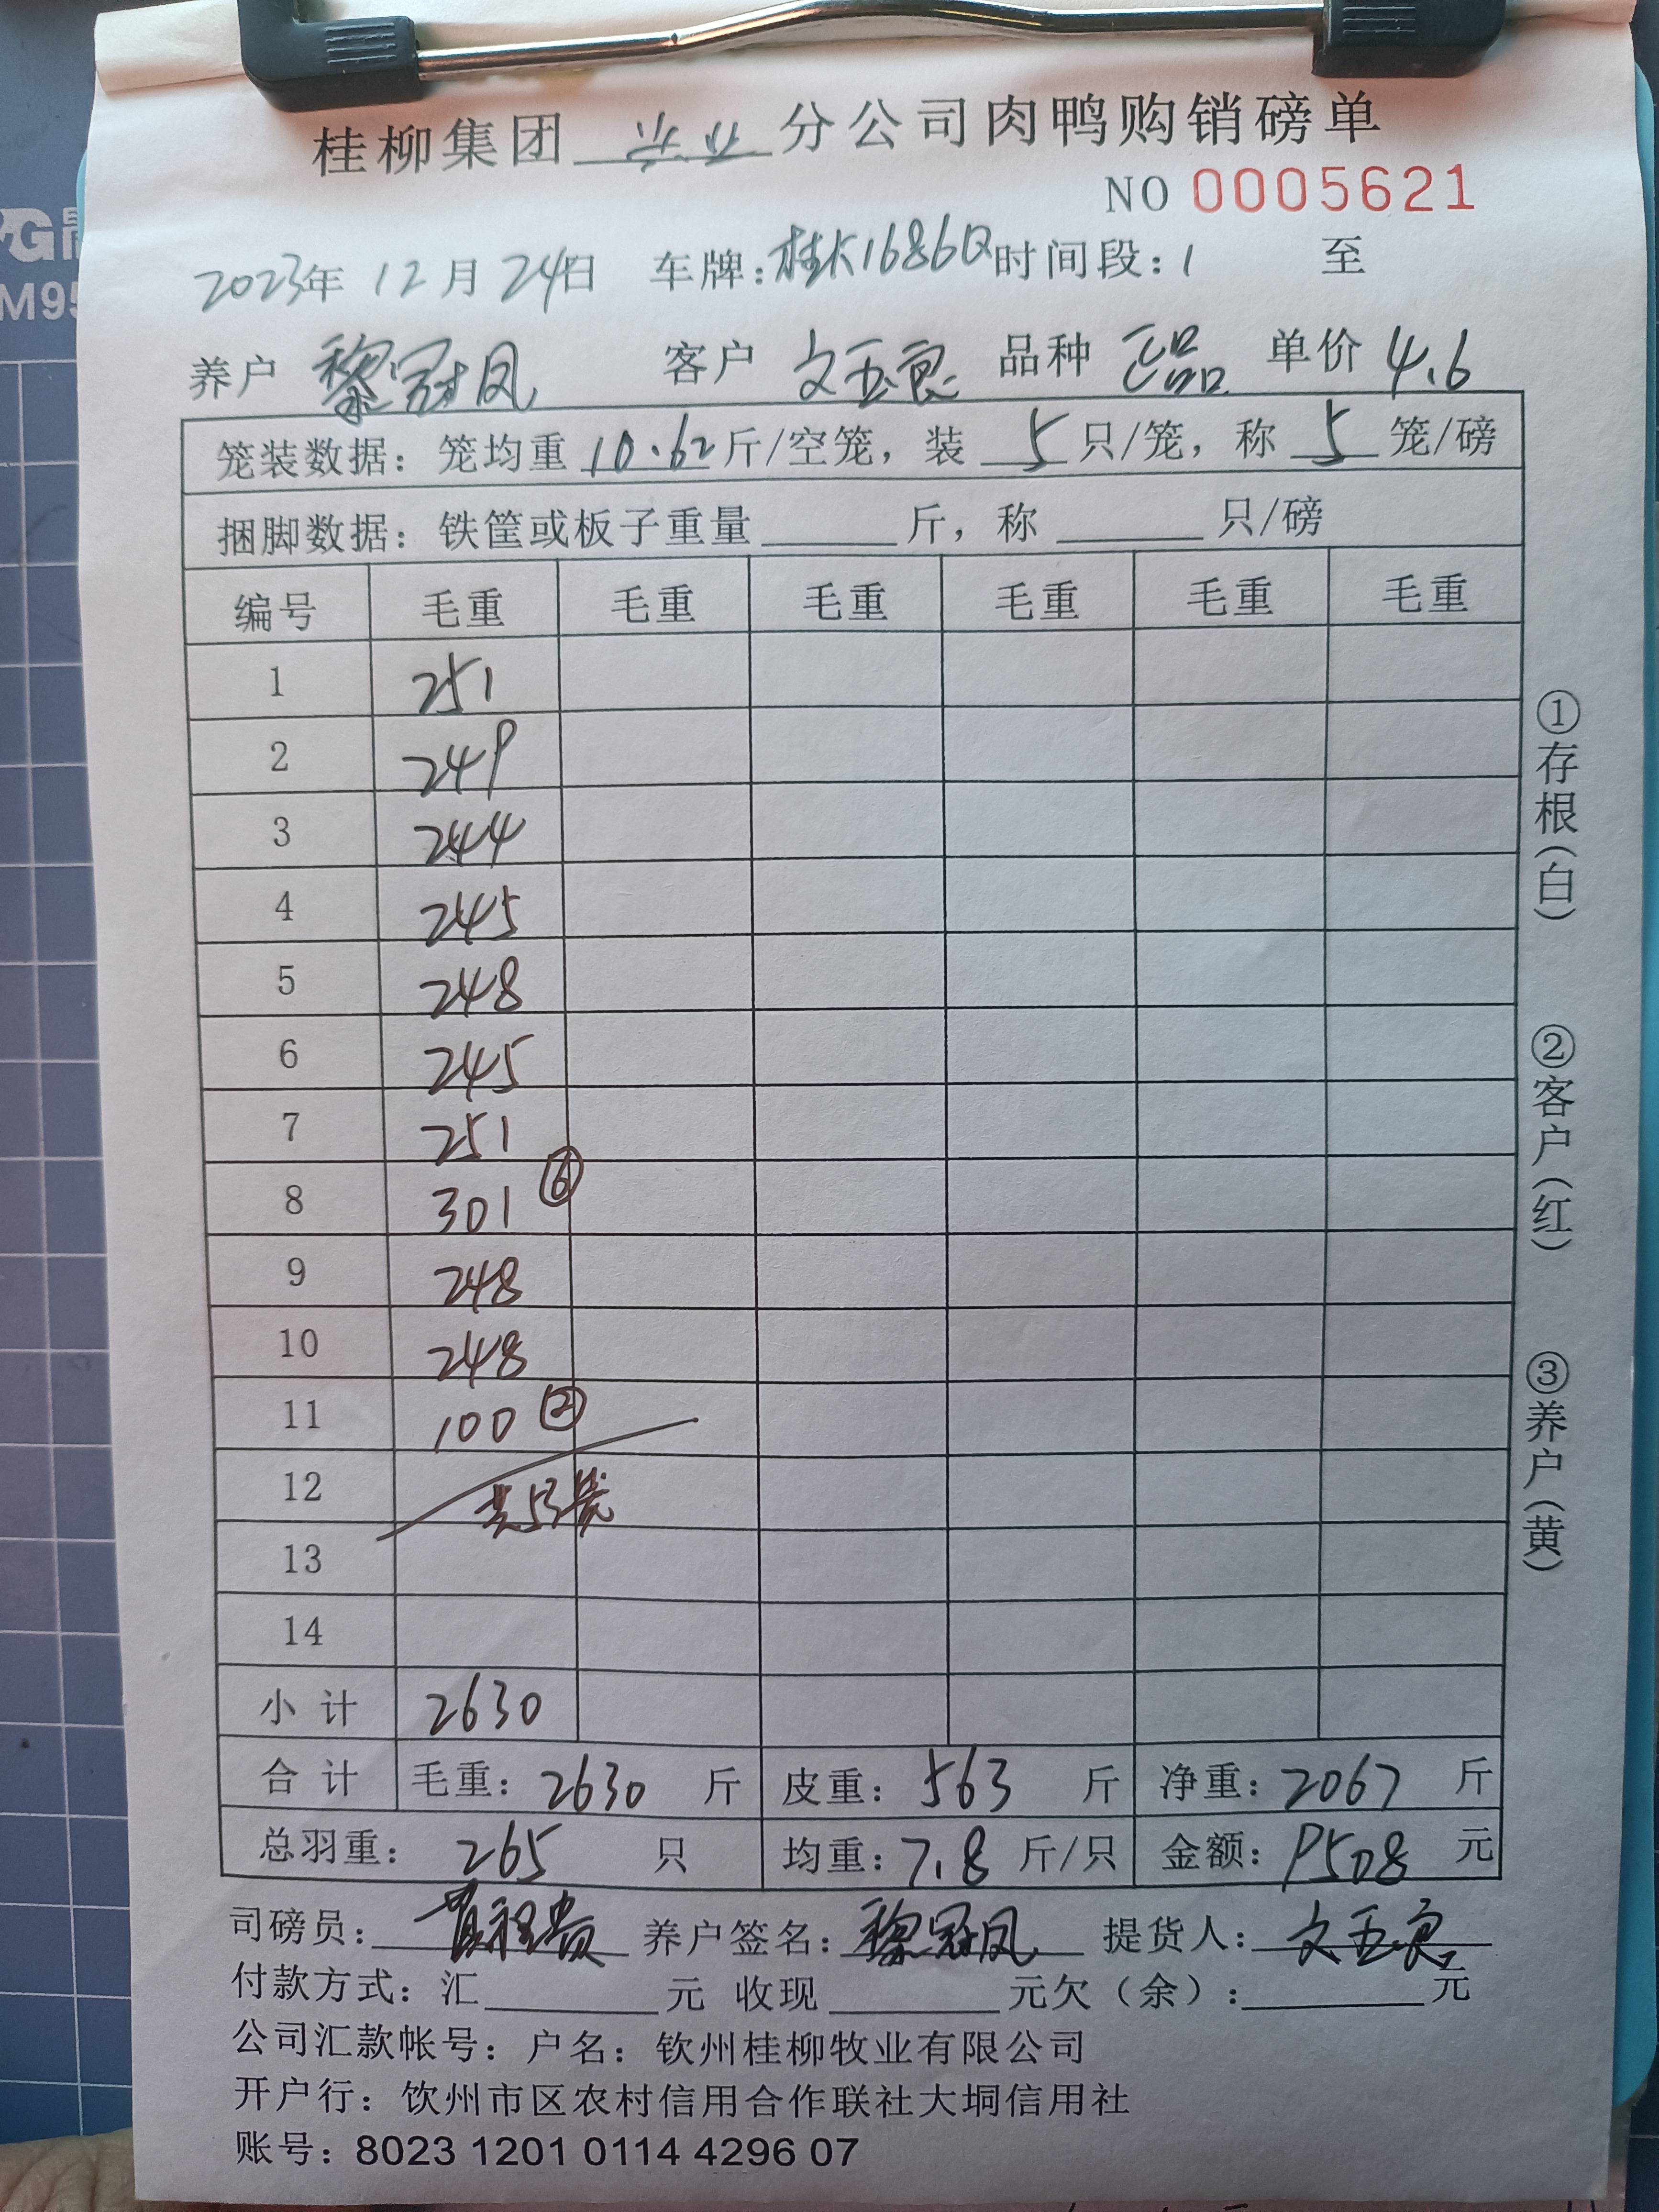 桂柳集团 兴业 分公司肉鸭购销磅单
NO 0005621
2023年 12月 24日 车牌:桂K1686Q 时间段:1 至
养户 黎冠凤 客户 文玉良 品种 正品 单价 4.6
笼装数据:笼均重 10.62 斤/空笼,装 5 只/笼,称 5 笼/磅
捆脚数据:铁筐或板子重量 斤,称 只/磅
编号 毛重 毛重 毛重 毛重 毛重 毛重
1 251
2 249
3 244
4 245
5 248
6 245
7 251
8 301 ⑥
9 248
10 248
11 100 ②
12 共53笼
13
14
小计 2630
合计 毛重:2630 斤 皮重:563 斤 净重:2067 斤
总羽重:265 只 均重:7.8 斤/只 金额:9508 元
司磅员: 养户签名:黎冠凤 提货人:文玉良
付款方式:汇 元 收现 元欠(余): 元
公司汇款帐号:户名:钦州桂柳牧业有限公司
开户行:饮州市区农村信用合作联社大垌信用社
账号:8023 1201 0114 4296 07
①存根(白)
②客户(红)
③养户(黄)
M95